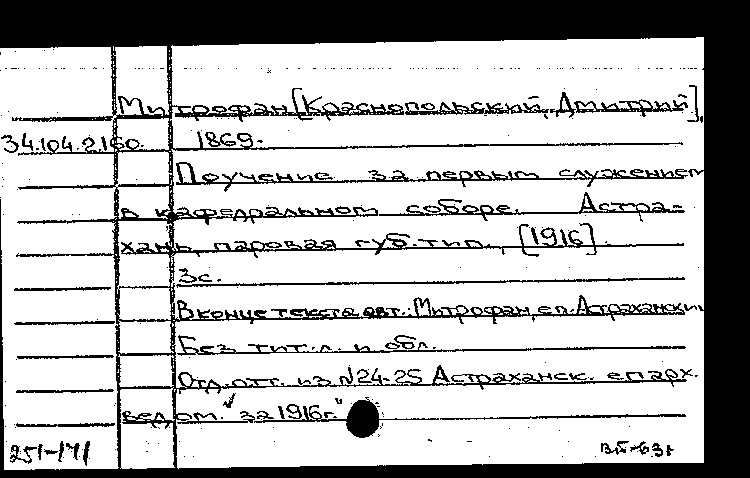 Митрофан [Краснопольский, Дмитрий],
34.104.2160. 1869-
Поучение за первым служением
в кафедральном соборе. Астра-
хань, паровая губ. тип., [1916].
3с.
В конце текста авт.: Митрофан, еп. Астраханский
Без тит. л. и обл.
Отд. отт. из №24-25 Астраханск. епарх.
ведом." за 1916г."
251-171